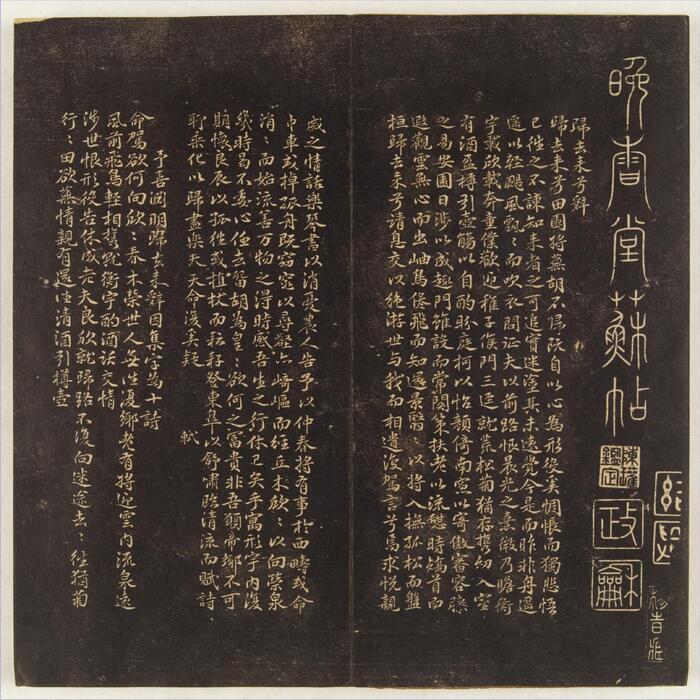 晚香堂蘇帖
政
龢
歸去來兮辭
歸去來兮田園將蕪胡不歸既自以心為形役奚惆悵而獨悲悟
已往之不諫知來者之可追實迷塗其未遠覺今是而昨非舟遥
遥以輕颺風飄〻而吹衣問征夫以前路恨晨光之熹微乃瞻衡
宇載欣載奔童僕歡迎稚子候門三逕就荒松菊猶存攜幼入室
有酒盈樽引壺觴以自酌眄庭柯以怡顏倚南窓以寄傲審容膝
之易安園日涉以成趣門雖設而常關策扶老以流憩時矯首而
遐觀雲無心而出岫鳥倦飛而知還景翳〻以將入撫孤松而盤
桓歸去來兮請息交以絕游世与我而相遺復駕言兮焉求悅親
戚之情話樂琴書以消憂農人告予以仲春將有事於西疇或命
巾車或棹孤舟既窈窕以尋壑亦崎嶇而經丘木欣〻以向榮泉
涓〻而始流善万物之得時感吾生之行休已矣乎寓形宇內復
幾時曷不委心任去留胡為皇〻欲何之富貴非吾願帝鄉不可
期懷良辰以孤往或植杖而耘耔登東皐以舒嘯臨清流而賦詩
聊乘化以歸盡樂夫天命復奚疑
軾
予喜淵明歸去來辭因集字為十詩
命駕欲何向欣〻春木榮世人無往復鄉老有將迎雲內流泉遠
風前飛鳥輕相攜就衡宇酌酒話交情
涉世恨形役告休成老夫良欣就歸路不復向迷途去〻徑猶菊
行〻田欲蕪情親有還往清酒引樽壺